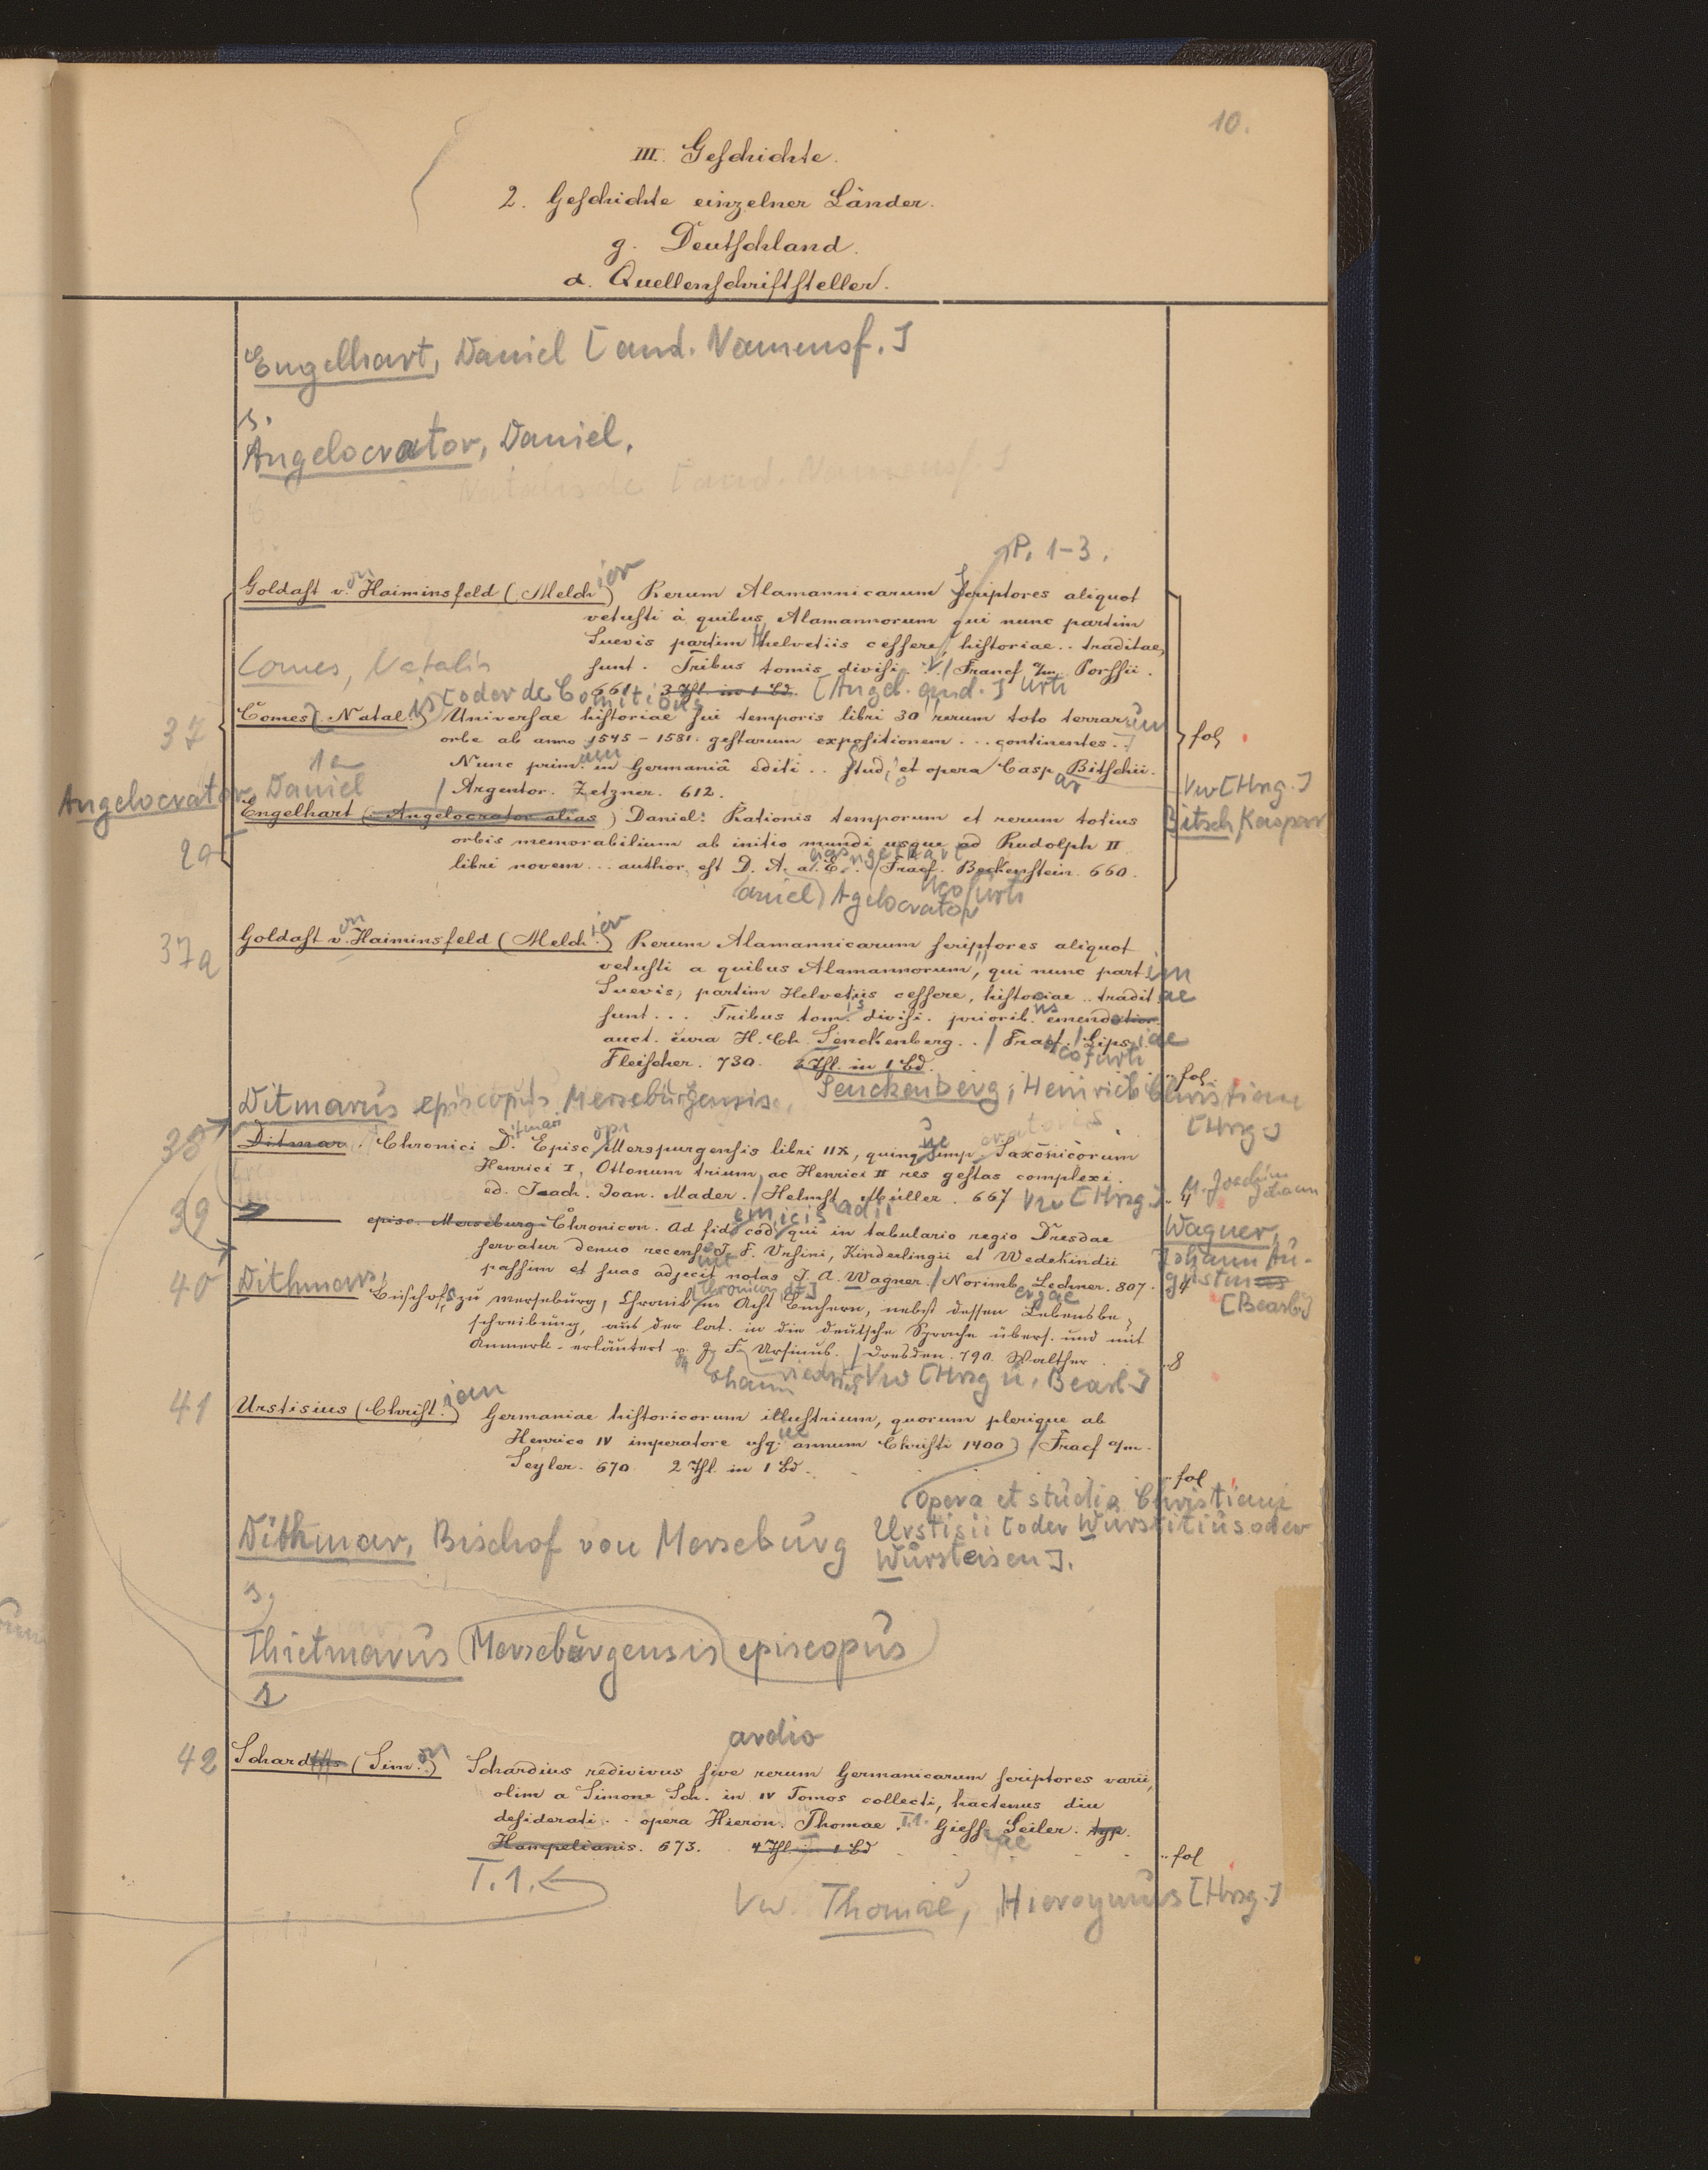 10.
III. Geschichte.
2. Geschichte einzelner Länder.
g. Deutschland.
α. Quellenschriftsteller.
Engelhart, Daniel [and. Namensf.]
s.
Angelocrator, Daniel.
P. 1-3.
Goldast von Haiminsfeld (Melchior) Rerum Alamannicarum Scriptores aliquot
vetusti à quibus Alamannorum qui nunc partim
Suevis partim Helvetiis cessere, historiae .. traditae,
sunt. Tribus tomis divisi .. / Francf a/m. Porssii.
661. 3 Thl. in 1 Bd. [Angeb.
Comes, Natalis [oder de Comitibus]
37
Comes (Natal.) Universae historiae sui temporis libri 30 rerum toto terrarum
orbe ab anno 1545 - 1581. gestarum expositionem ... continentes ..
Nunc primum in Germaniâ editi .. stud. et opera Caspar Bitschii.
/ Argentor. Zetzner. 612.
fol
Vw [Hrsg.]
Bitsch, Kaspar
Angelocrator, Daniel
Engelhart (Angelocrator alias) Daniel: Rationis temporum et rerum totius
orbis memorabilium ab initio mundi usque ad Rudolph II
libri novem ... author. est D. A. a. E. . / Fracf. Beckenstein. 660.
aniel) Agelocrator
37a
Goldast von Haiminsfeld (Melchior) Rerum Alamannicarum scriptores aliquot
vetusti a quibus Alamannorum, qui nunc partim
Suevis, partim Helvetiis cessere, historiae .. traditae
sunt ... Tribus tomis divisi. priorib. emendatior.
auct. cura H. Ch. Senckenberg .. / Fracofurti / Lipsiae
Fleischer. 730. 2 Thl. in 1 Bd. .. fol.
Senckenberg, Heinrich Christian
[Hrsg.]
Ditmarus episcopus Merseburgensis.
38
Ditmar. Chronici Ditmari Episcopi Merspurgensis libri IIX, quinque imp. Saxonicorum
Henrici I, Ottonum trium, ac Henrici II res gestas complexi.
ed. Joach. Joan. Mader. / Helmst. Müller. 667 Vw [Hrsg.] 4
M. Joachim
Johann
39
episc. Merseburg. Chronicon. Ad fidem codicis qui in tabulario regio Dresdae
servatur denuo recens. J. F. Ursini, Kinderlingii et Wedekindii
passim et suas adjecit notas J. A. Wagner. / Norimbergae Lechner. 807. 4
Wagner,
Johann Au-
gustin
[Bearb.]
40
Dithmars,
Bischofs zu Merseburg, Chronik in Acht Büchern, nebst dessen Lebensbe-
schreibung, aus der lat. in die deutsche Sprache übers. und mit
Anmerk. erläutert v. J. F. Ursinus. / Dresden. 790. Walther .. 8
Vw [Hrsg u. Bearb.]
41
Urstisius (Christian) Germaniae historicorum illustrium, quorum plerique ab
Henrico IV imperatore usque annum Christi 1400) / Fracf a/m.
Seyler. 670. 2 Thl. in 1 Bd. .. fol
Opera et studio Christiani
Urstisii [oder Wurstitius oder
Wursteisen].
Dithmar, Bischof von Merseburg
s.
Thietmarus Merseburgensis episcopus
42
Schardius (Simon) Schardius redivivus sive rerum Germanicarum scriptores varii,
ardio
olim a Simone Sch. in IV Tomos collecti, hactenus diu
desiderati .. opera Hieron. Thomae. T.1. Giessae Seiler. typ.
Hampelianis. 673. 4 Thl. in 1 Bd .. fol
T. 1.
Vw. Thomae, Hieroymus [Hrsg.]